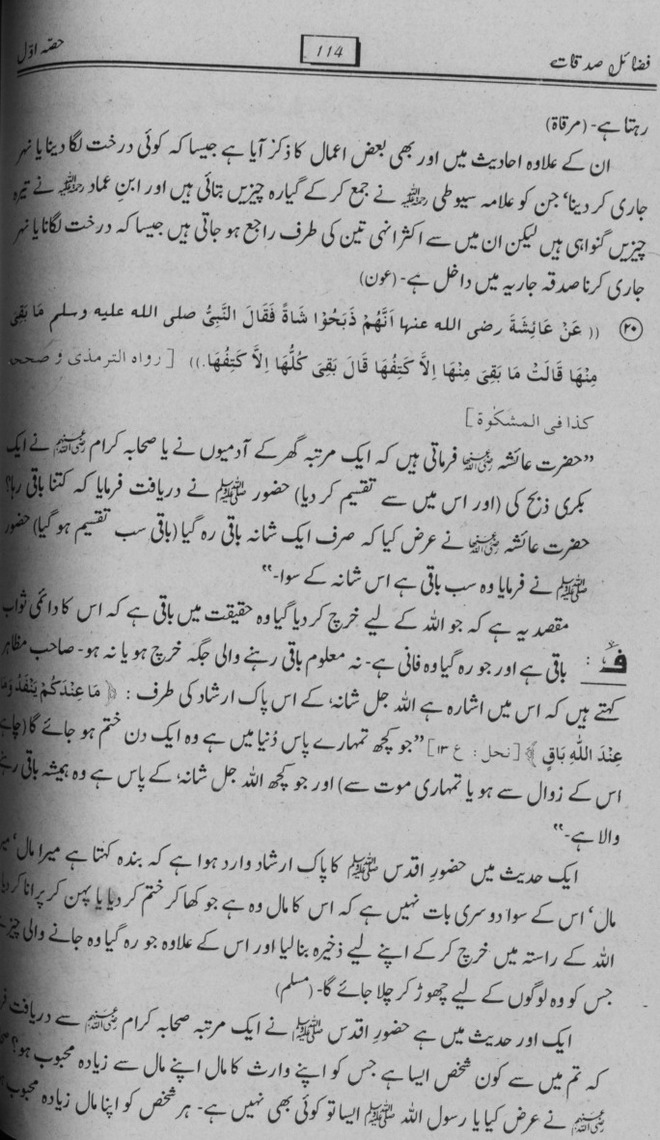 فضائل صدقات 114 حصہ اول
رہتا ہے۔ (مرقاۃ)
ان کے علاوہ احادیث میں اور بھی بعض اعمال کا ذکر آیا ہے جیسا کہ کوئی درخت لگا دینا یا نہر
جاری کر دینا‘ جن کو علامہ سیوطی رحمہ اللہ نے جمع کر کے گیارہ چیزیں بتائی ہیں اور ابن عماد رحمہ اللہ نے تیرہ
چیزیں گنواہی ہیں لیکن ان میں سے اکثر انہی تین کی طرف راجع ہو جاتی ہیں جیسا کہ درخت لگانا یا نہر
جاری کرنا صدقہ جاریہ میں داخل ہے۔ (عون)
۲۰ (( عَنْ عَائِشَةَ رضى الله عنها اَنَّهُمْ ذَبَحُوْا شَاةً فَقَالَ النَّبِيُّ صلى الله عليه وسلم مَا بَقِيَ
مِنْهَا قَالَتْ مَا بَقِيَ مِنْهَا اِلَّا كَتِفُهَا قَالَ بَقِيَ كُلُّهَا اِلَّا كَتِفُهَا.)) [رواه الترمذى و صححه
كذا فى المشكوة]
”حضرت عائشہ رضی اللہ عنہا فرماتی ہیں کہ ایک مرتبہ گھر کے آدمیوں نے یا صحابہ کرام رضی اللہ عنہم نے ایک
بکری ذبح کی (اور اس میں سے تقسیم کر دیا) حضور ﷺ نے دریافت فرمایا کہ کتنا باقی رہا؟
حضرت عائشہ رضی اللہ عنہا نے عرض کیا کہ صرف ایک شانہ باقی رہ گیا (باقی سب تقسیم ہو گیا) حضور
ﷺ نے فرمایا وہ سب باقی ہے اس شانہ کے سوا۔“
مقصد یہ ہے کہ جو اللہ کے لیے خرچ کر دیا گیا وہ حقیقت میں باقی ہے کہ اس کا دائمی ثواب
ف : باقی ہے اور جو رہ گیا وہ فانی ہے۔ نہ معلوم باقی رہنے والی جگہ خرچ ہو یا نہ ہو۔ صاحب مظاہر
کہتے ہیں کہ اس میں اشارہ ہے اللہ جل شانہ‘ کے اس پاک ارشاد کی طرف : ﴿ مَا عِنْدَكُمْ يَنْفَدُ وَمَا
عِنْدَ اللهِ بَاقٍ ﴾ [نحل : ع ۱۳] ”جو کچھ تمہارے پاس دُنیا میں ہے وہ ایک دن ختم ہو جائے گا (چاہے
اس کے زوال سے ہو یا تمہاری موت سے) اور جو کچھ اللہ جل شانہ‘ کے پاس ہے وہ ہمیشہ باقی رہنے
والا ہے۔“
ایک حدیث میں حضورِ اقدس ﷺ کا پاک ارشاد وارد ہوا ہے کہ بندہ کہتا ہے میرا مال‘ میرا
مال‘ اس کے سوا دوسری بات نہیں ہے کہ اس کا مال وہ ہے جو کھا کر ختم کر دیا یا پہن کر پرانا کر دیا
اللہ کے راستہ میں خرچ کر کے اپنے لیے ذخیرہ بنا لیا اور اس کے علاوہ جو رہ گیا وہ جانے والی چیز ہے
جس کو وہ لوگوں کے لیے چھوڑ کر چلا جائے گا۔ (مسلم)
ایک اور حدیث میں ہے حضورِ اقدس ﷺ نے ایک مرتبہ صحابہ کرام رضی اللہ عنہم سے دریافت
کہ تم میں سے کون شخص ایسا ہے جس کو اپنے وارث کا مال اپنے مال سے زیادہ محبوب ہو؟
رضی اللہ عنہم نے عرض کیا یا رسول اللہ ﷺ ایسا تو کوئی بھی نہیں ہے۔ ہر شخص کو اپنا مال زیادہ محبوب